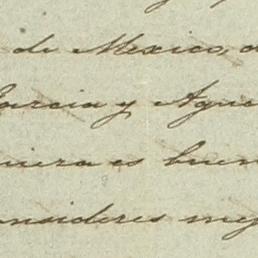 de Mexico, d
Garcia y Ague
niera es buen
onsideres mej